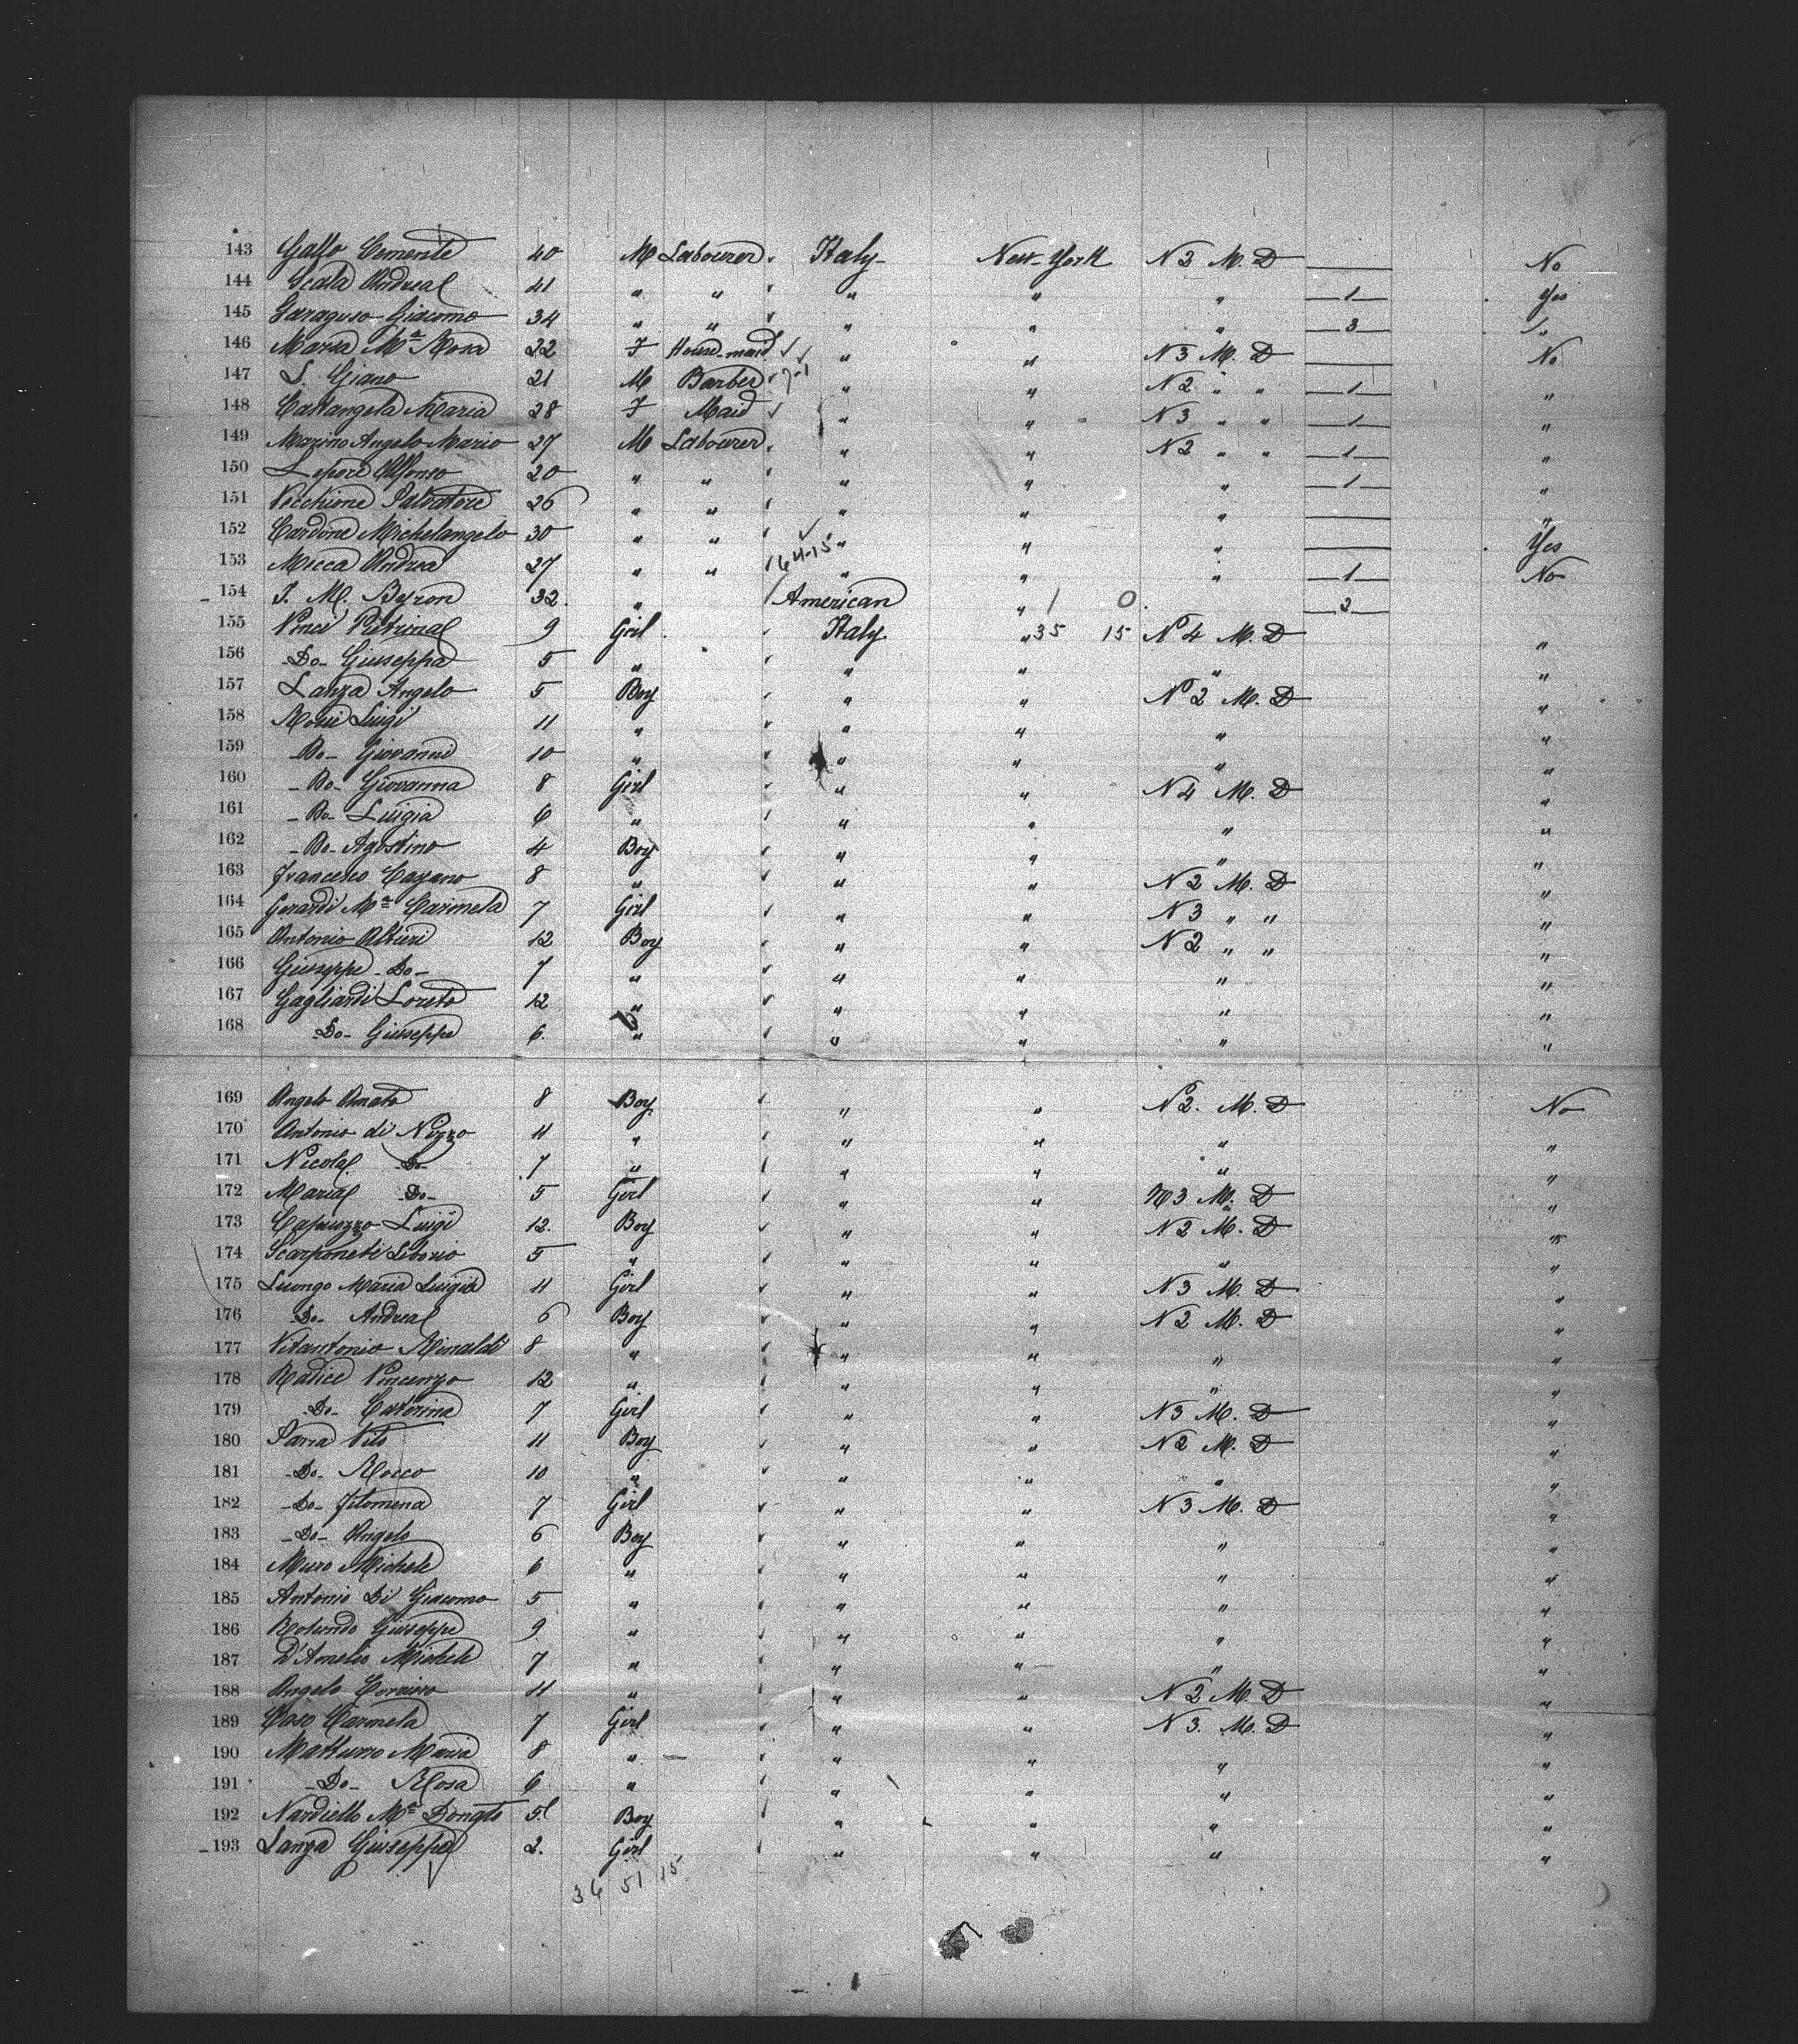 143 Gallo Cemente 40 M Labourer Italy New-York N 3 M. D —— No
144 Scala Andrea 41 " " " " " —1— Yes
145 Saraguso Giacomo 34 " " " " " —3— "
146 Marsa Mª Rosa 22 F House-maid " " N 3 M. D —— No
147 S. Giano 21 M Barber 7-1 " " N 2 " " —1— "
148 Cattangela Maria 28 F Maid " " N 3 " " —1— "
149 Marino Angelo Mario 27 M Labourer " " N 2 " " —1— "
150 Lepore Alfonso 20 " " " " " —1— "
151 Vecchione Salvatore 26 " " " " " —— "
152 Cardone Michelangelo 30 " " " " " —— Yes
153 Micca Andrea 27 " " 164-15 " " " —1— No
154 J. M. Byron 32. " American " 1 0 —2—
155 Vinci Pietrina 9 Girl Italy " 35 15 N 4 M. D "
156 -Do- Giuseppa 5 " " " " "
157 Lanza Angelo 5 Boy " " N 2 M. D "
158 Luigi 11 " " " " "
159 -Do- Giovanni 10 " " " " "
160 -Do- Giovanna 8 Girl " " N 4 M. D "
161 -Do- Luigia 6 " " " " "
162 -Do- Agostino 4 Boy " " " "
163 Francesco Cayano 8 " " " N 2 M. D "
164 Gerardi Mª Carmela 7 Girl " " N 3 " " "
165 Antonio Altieri 12 Boy " " N 2 " " "
166 Giuseppe -Do- 7 " " " " "
167 Gagliardi Loreto 12 " " " " "
168 -Do- Giuseppe 6. " " " " "
169 Angelo Amato 8 Boy " " N 2. M. D No
170 Antonio di Nizzo 11 " " " " "
171 Nicola -Do- 7 " " " " "
172 Maria -Do- 5 Girl " " N 3 M. D "
173 Capuozzo Luigi 12. Boy " " N 2 M. D "
174 Scarponeti Liborio 5 " " " " "
175 Luongo Maria Luigia 11 Girl " " N 3 M. D "
176 -Do- Andrea 6 Boy " " N 2 M. D "
177 Vitantonio Rinaldi 8 " " " " "
178 Radice Vincenzo 12 " " " " "
179 -Do- Caterina 7 Girl " " N 3 M. D "
180 Sarra Vito 11 Boy " " N 2 M. D "
181 -Do- Rocco 10 " " " " "
182 -Do- Filomena 7 Girl " " N 3 M. D "
183 -Do- Angelo 6 Boy " " " "
184 Muro Michele 6 " " " " "
185 Antonio Di Giacomo 5 " " " " "
186 Rotundo Giuseppe 9 " " " " "
187 D'Amelio Michele 7 " " " " "
188 Angelo 11 " " " N 2 M. D "
189 Coso Carmela 7 Girl " " N 3. M. D "
190 Matturro Maria 8 " " " " "
191 -Do- Rosa 6 " " " " "
192 Nardiello Mª Donato 5 Boy " " " "
193 Lanza Giuseppa 2. Girl " " " "
36 51 15